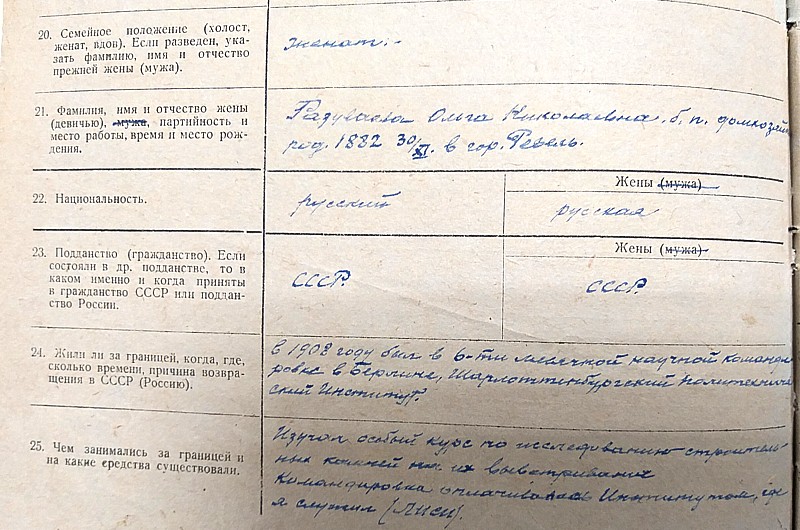 20. Семейное положение (холост,
женат, вдов). Если разведен, ука-
зать фамилию, имя и отчество
прежней жены (мужа).
женат.-
21. Фамилия, имя и отчество жены
(девичью), мужа, партийность и
место работы, время и место рож-
дения.
Ольга Николаевна. б. п. домхозяй
род. 1882 30/XI. в гор. Ревель.
22. Национальность.
русский
Жены (мужа)
русская
23. Подданство (гражданство). Если
состояли в др. подданстве, то в
каком именно и когда приняты
в гражданство СССР или поддан-
ство России.
СССР.
Жены (мужа)
СССР.
24. Жили ли за границей, когда, где,
сколько времени, причина возвра-
щения в СССР (Россию).
в 1908 году был в 6-ти месячной научной команди-
ровке в Берлине, Шарлоттенбургский Политехниче
ский Институт.
25. Чем занимались за границей и
на какие средства существовали.
Изучал особый курс по исследованию строитель-
ных камней на их выветривание
Командировка оплачивалась Институтом, где
я служил